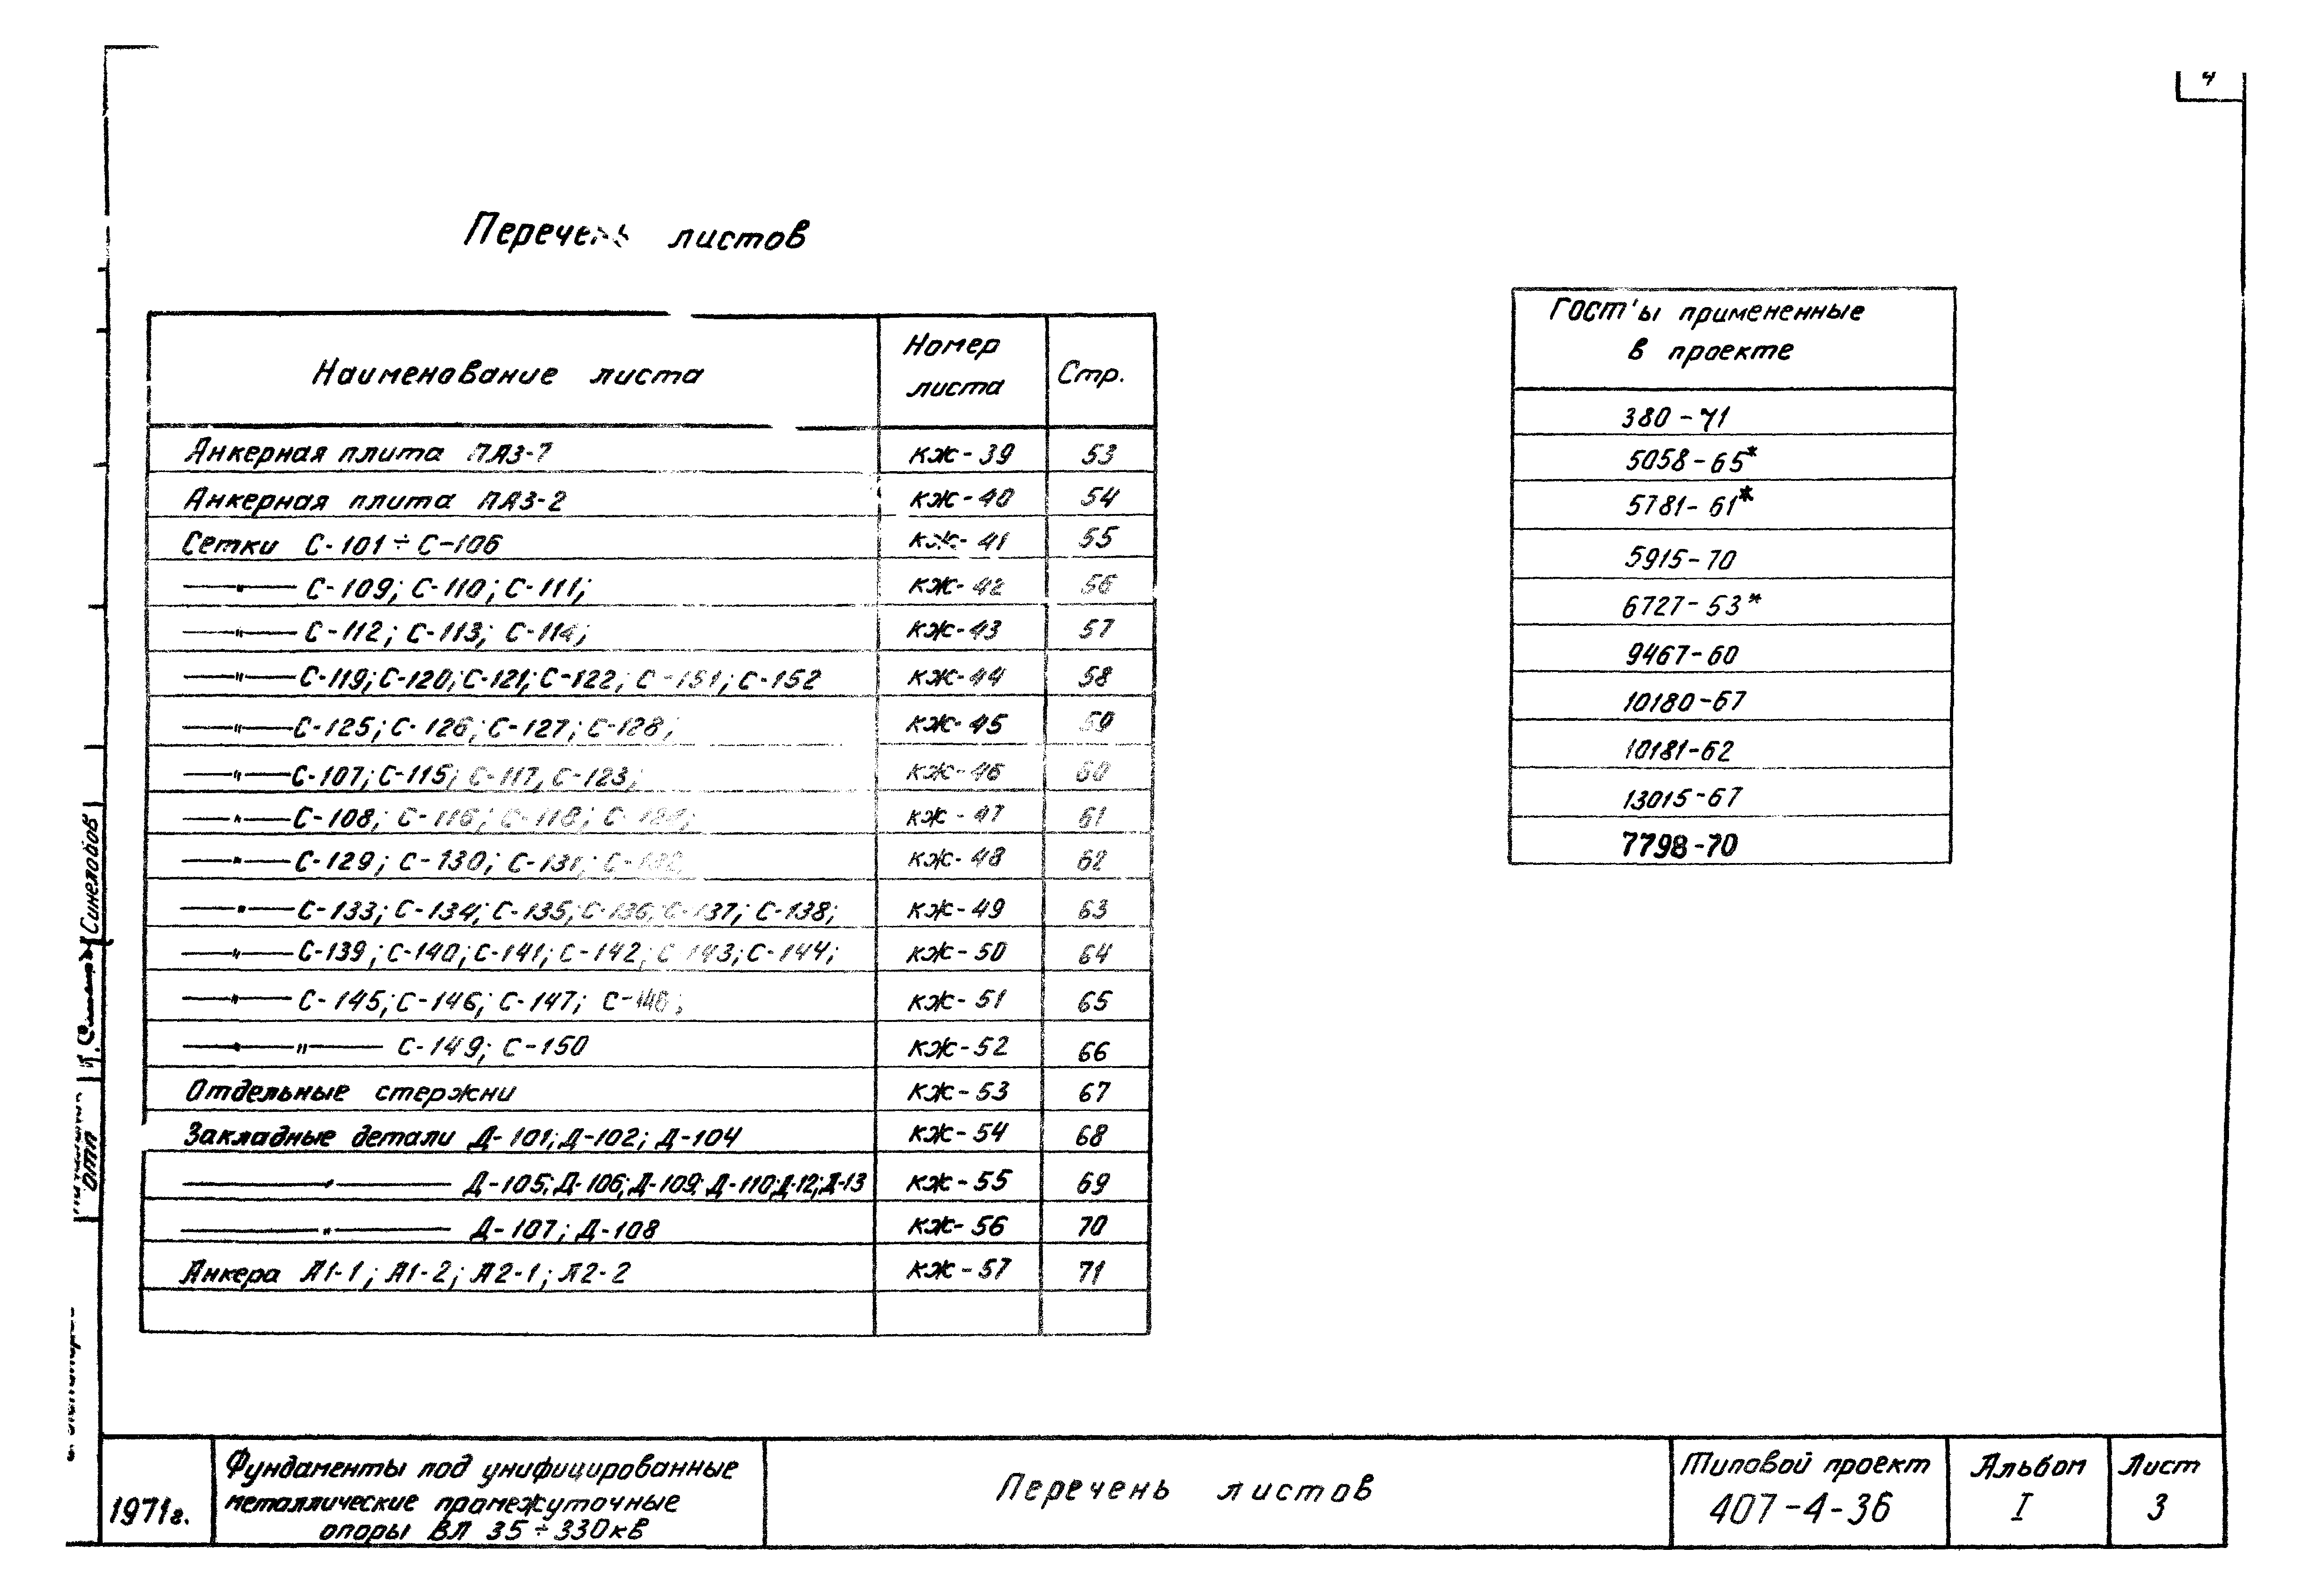 4
Перечень листов
Наименование листа Номер листа Стр.
Анкерная плита ПА3-1 КЖ-39 53
Анкерная плита ПА3-2 КЖ-40 54
Сетки С-101÷С-106 КЖ-41 55
—"— С-109; С-110; С-111; КЖ-42 56
—"— С-112; С-113; С-114; КЖ-43 57
—"— С-119; С-120; С-121; С-122; С-151; С-152 КЖ-44 58
—"— С-125; С-126; С-127; С-128; КЖ-45 59
—"— С-107; С-115; С-117, С-123; КЖ-46 60
—"— С-108; С-116; С-118; С-124; КЖ-47 61
—"— С-129; С-130; С-131; С-132; КЖ-48 62
—"— С-133; С-134; С-135; С-136; С-137; С-138; КЖ-49 63
—"— С-139; С-140; С-141; С-142; С-143; С-144; КЖ-50 64
—"— С-145; С-146; С-147; С-148; КЖ-51 65
—"— С-149; С-150 КЖ-52 66
Отдельные стержни КЖ-53 67
Закладные детали Д-101; Д-102; Д-104 КЖ-54 68
—"— Д-105; Д-106; Д-109; Д-110; Д-12; Д-13 КЖ-55 69
—"— Д-107; Д-108 КЖ-56 70
Анкера А1-1; А1-2; А2-1; А2-2 КЖ-57 71
ГОСТ'ы примененные
в проекте
380-71
5058-65*
5781-61*
5915-70
6727-53*
9467-60
10180-67
10181-62
13015-67
7798-70
Синелобов
ОТП
1971г.
Фундаменты под унифицированные
металлические промежуточные
опоры ВЛ 35÷330кв
Перечень листов
Типовой проект
407-4-36
Альбом
I
Лист
3